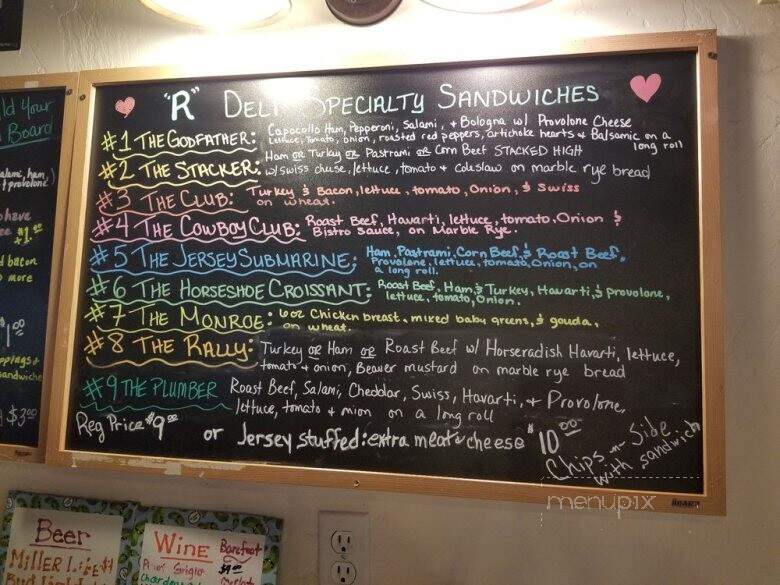 "R" DELI SPECIALTY SANDWICHES
#1 THE GODFATHER: Capocollo Ham, Pepperoni, Salami, + Bologna w/ Provolone Cheese
Lettuce, Tomato, onion, roasted red peppers, artichoke hearts & Balsamic on a long roll
#2 THE STACKER: Ham OR Turkey OR Pastrami OR Corn Beef STACKED HIGH
w/swiss cheese, lettuce, tomato + coleslaw on marble rye bread
#3 THE CLUB: Turkey & Bacon, lettuce, tomato, Onion, & Swiss
on wheat.
#4 THE COWBOY CLUB: Roast Beef, Havarti, lettuce, tomato, Onion &
Bistro Sauce, on Marble Rye.
#5 THE JERSEY SUBMARINE: Ham, Pastrami, Corn Beef, & Roast Beef,
Provolone, lettuce, tomato, Onion, on
a long roll.
#6 THE HORSESHOE CROISSANT: Roast Beef, Ham & Turkey, Havarti, & provolone,
lettuce, tomato, Onion.
#7 THE MONROE: 6oz Chicken breast, mixed baby greens, & gouda,
on wheat.
#8 THE RALLY: Turkey OR Ham OR Roast Beef w/ Horseradish Havarti, lettuce,
tomato + onion, Beaver mustard on marble rye bread
#9 THE PLUMBER Roast Beef, Salami, Cheddar, Swiss, Havarti, + Provolone,
lettuce, tomato + onion on a long roll
Reg Price $9.00 or Jersey stuffed: extra meat & cheese $10.00
Chips - n - Side
with sandwich
ld your
Board
alami, ham,
+ provolone)
have
+$1.00
d bacon
more
$1.00
oppings +
sandwiche
$3.00
Beer
MILLER LITE
Bud Light
WINE Barefoot
Pinot Grigio
Chardon
Merlot
menupix